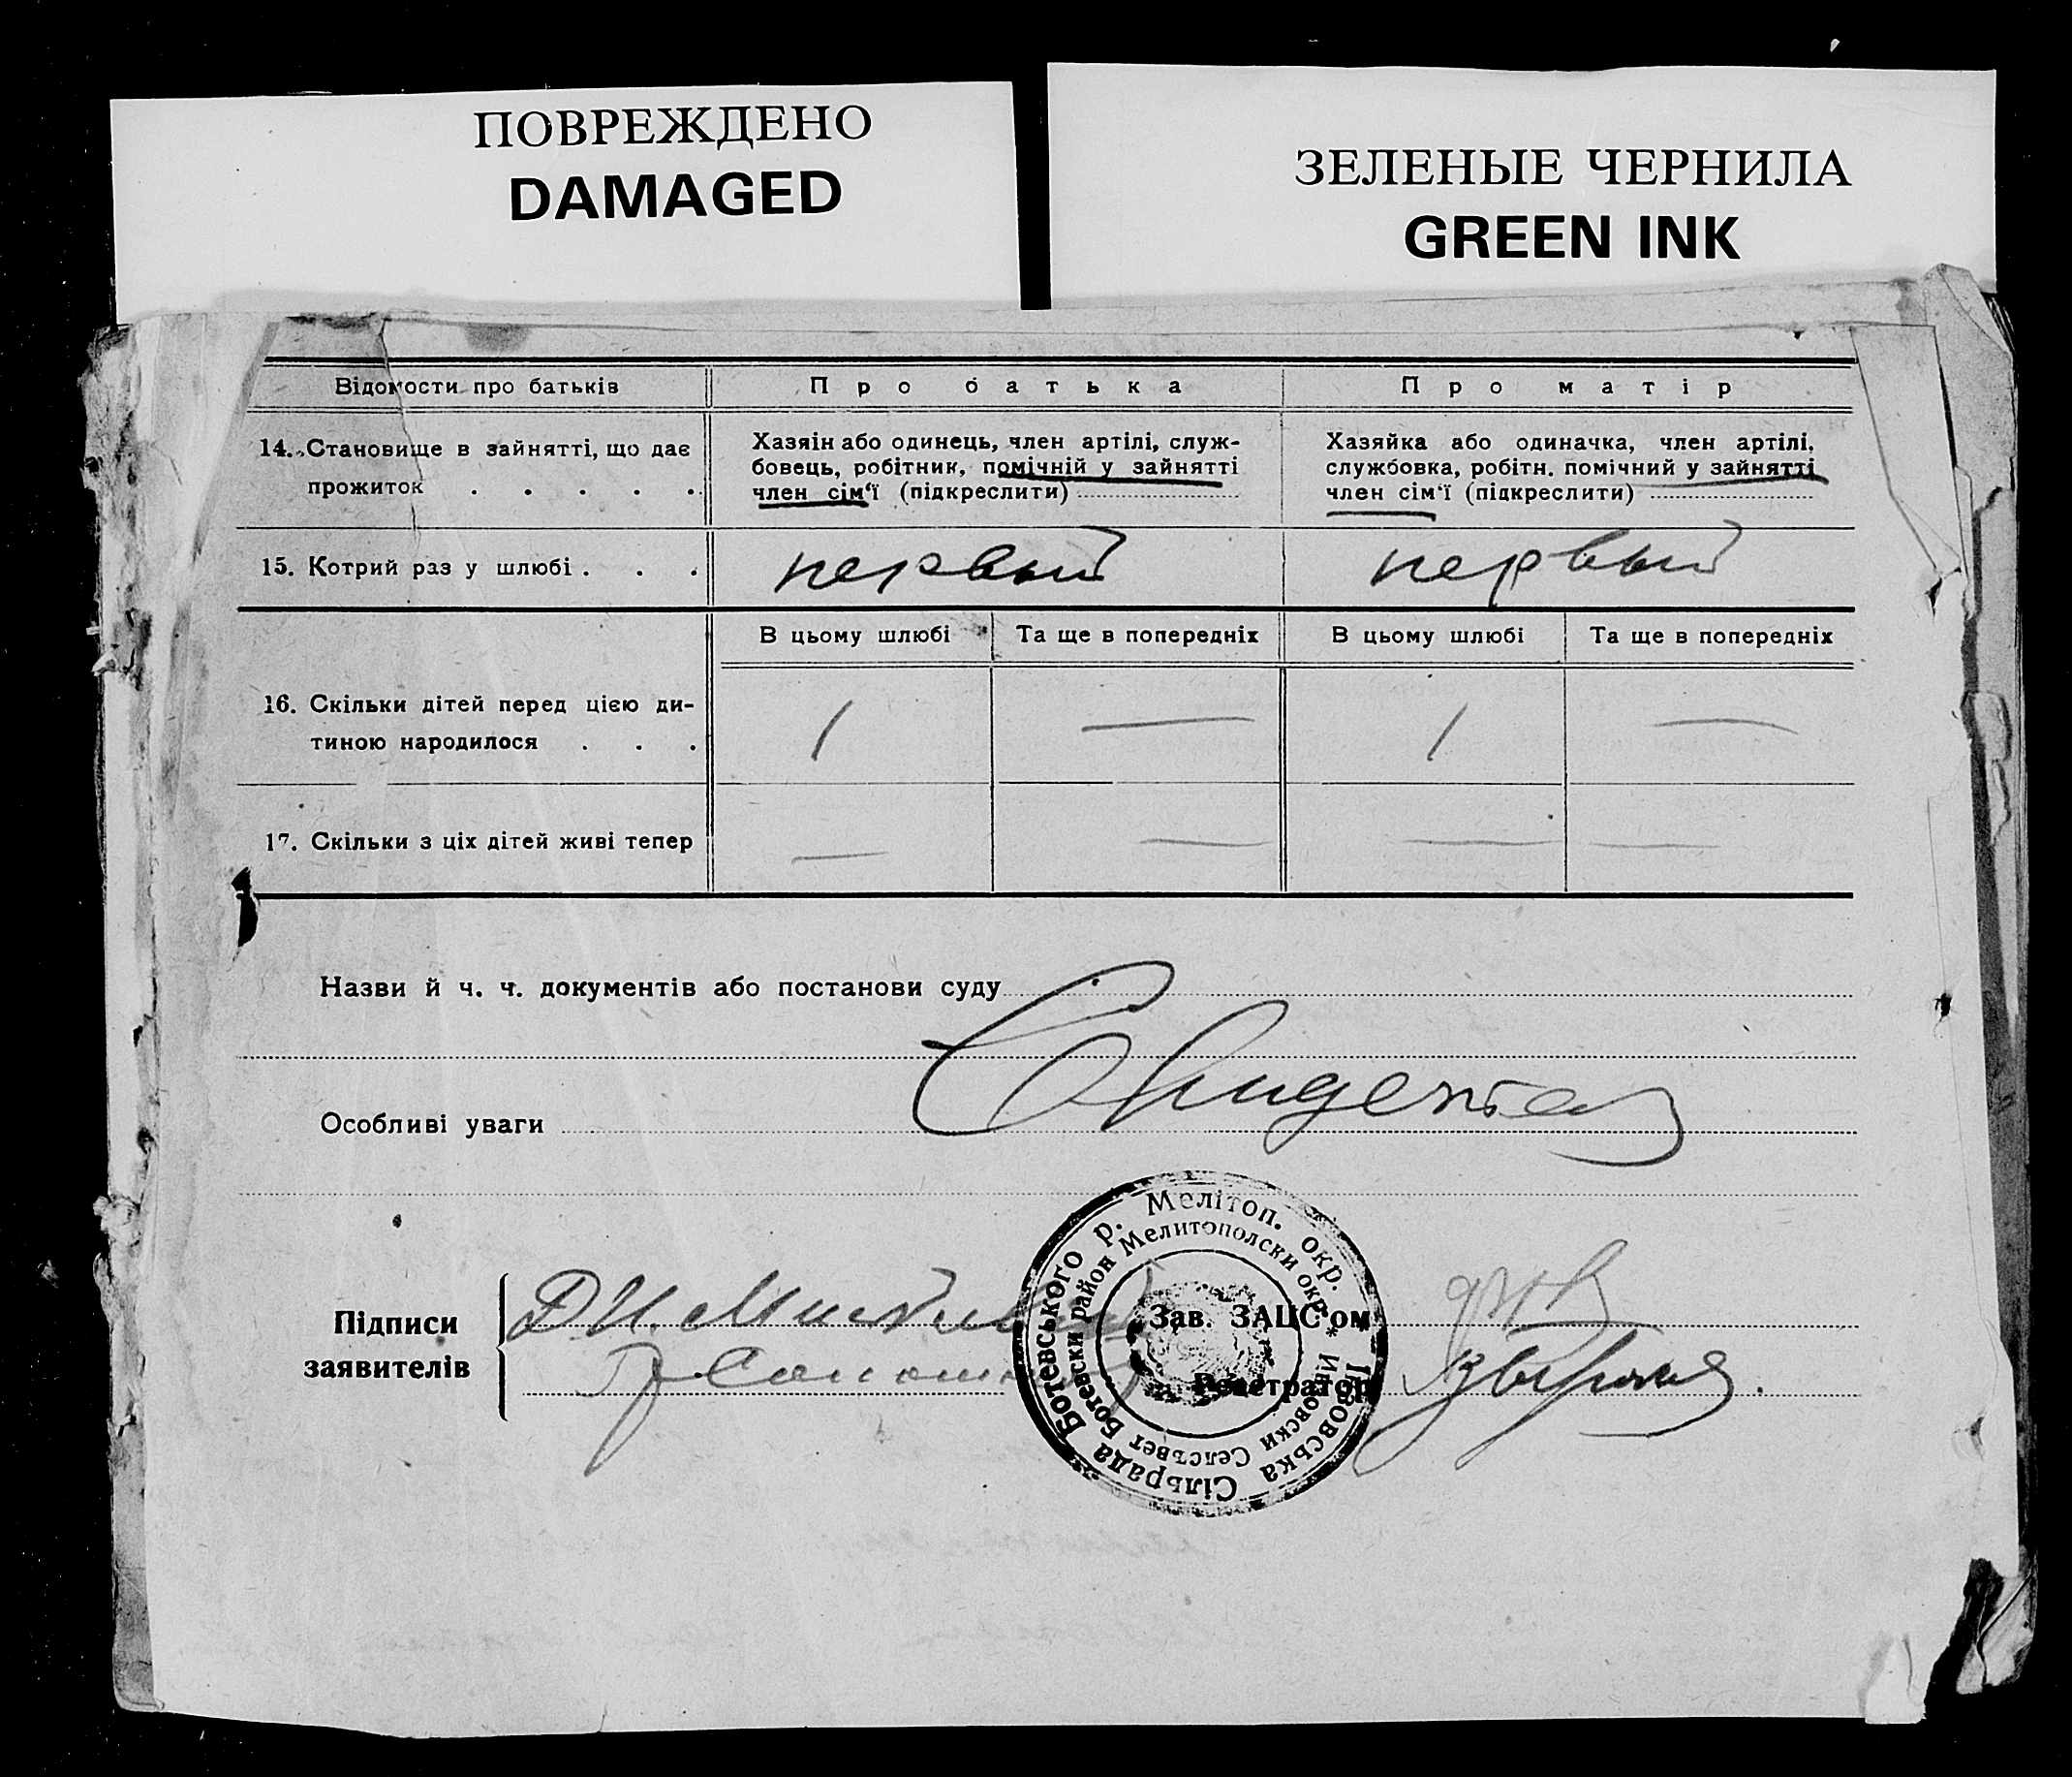 ПОВРЕЖДЕНО
DAMAGED
ЗЕЛЕНЫЕ ЧЕРНИЛА
GREEN INK
Відомости про батьків
Про батька
Про матір
14. Становище в зайнятті, що дає
прожиток . . . . .
Хазяін або одинець, член артілі, служ-
бовець, робітник, помічній у зайнятті
член сім‘ї (підкреслити)
Хазяйка або одиначка, член артілі,
службовка, робітн. помічний у зайнятті
член сім‘ї (підкреслити)
15. Котрий раз у шлюбі . . .
первый
первый
В цьому шлюбі
Та ще в попередніх
В цьому шлюбі
Та ще в попередніх
16. Скільки дітей перед цією ди-
тиною народилося . . .
1
—
1
—
17. Скільки з ціх дітей живі тепер
—
—
—
—
Назви й ч. ч. документів або постанови суду
Особливі уваги
Підписи
заявителів
Д И.
Зав. ЗАЦС‘ом
Реєстратор
Сільрада Ботевського р. Мелітоп. окр.
Селсъвет Ботевски район Мелитополски окр.